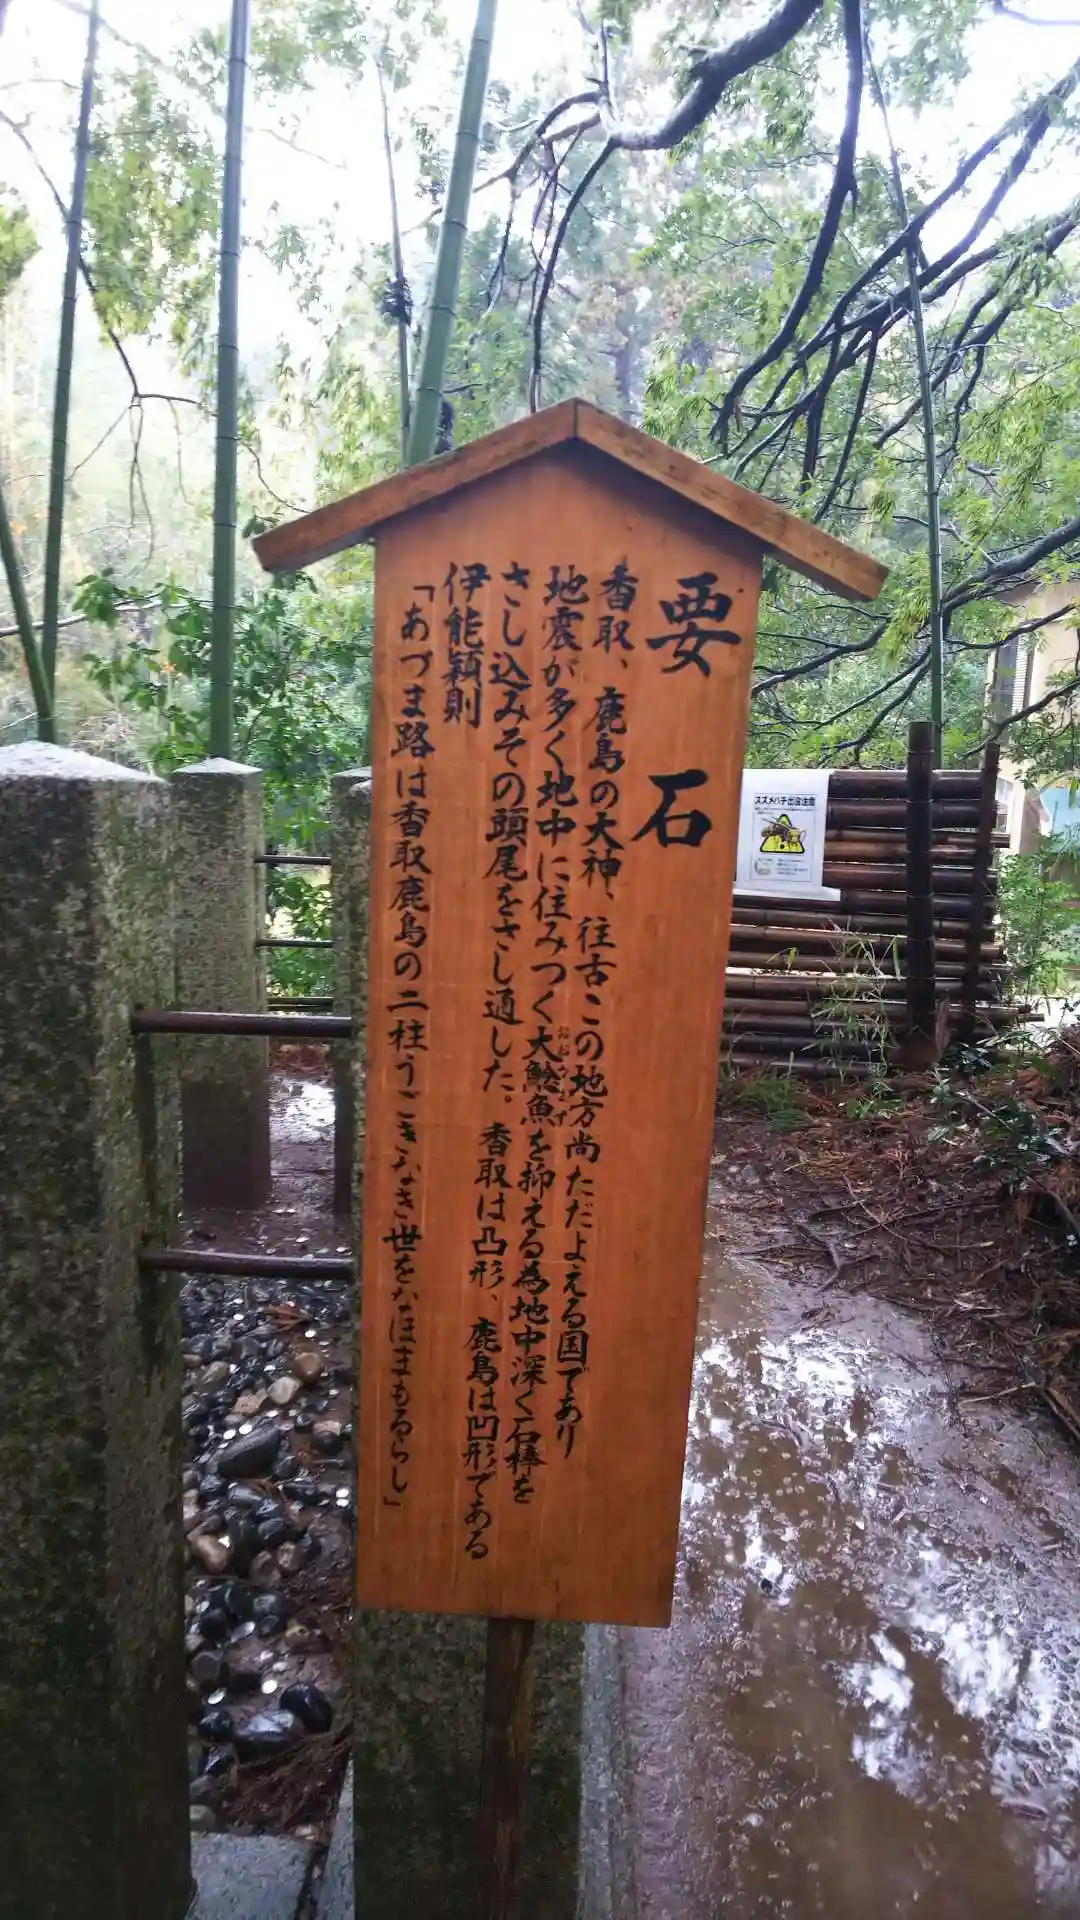 要石
香取、鹿島の大神、往古この地方尚ただよえる国であり
地震が多く地中に住みつく大鯰魚を抑える為地中深く石棒を
さし込みその頭尾をさし通した。香取は凸形、鹿島は凹形である
伊能穎則
「あづま路は香取鹿島の二柱うごきなき世をなほまもるらし」
スズメバチ出没注意